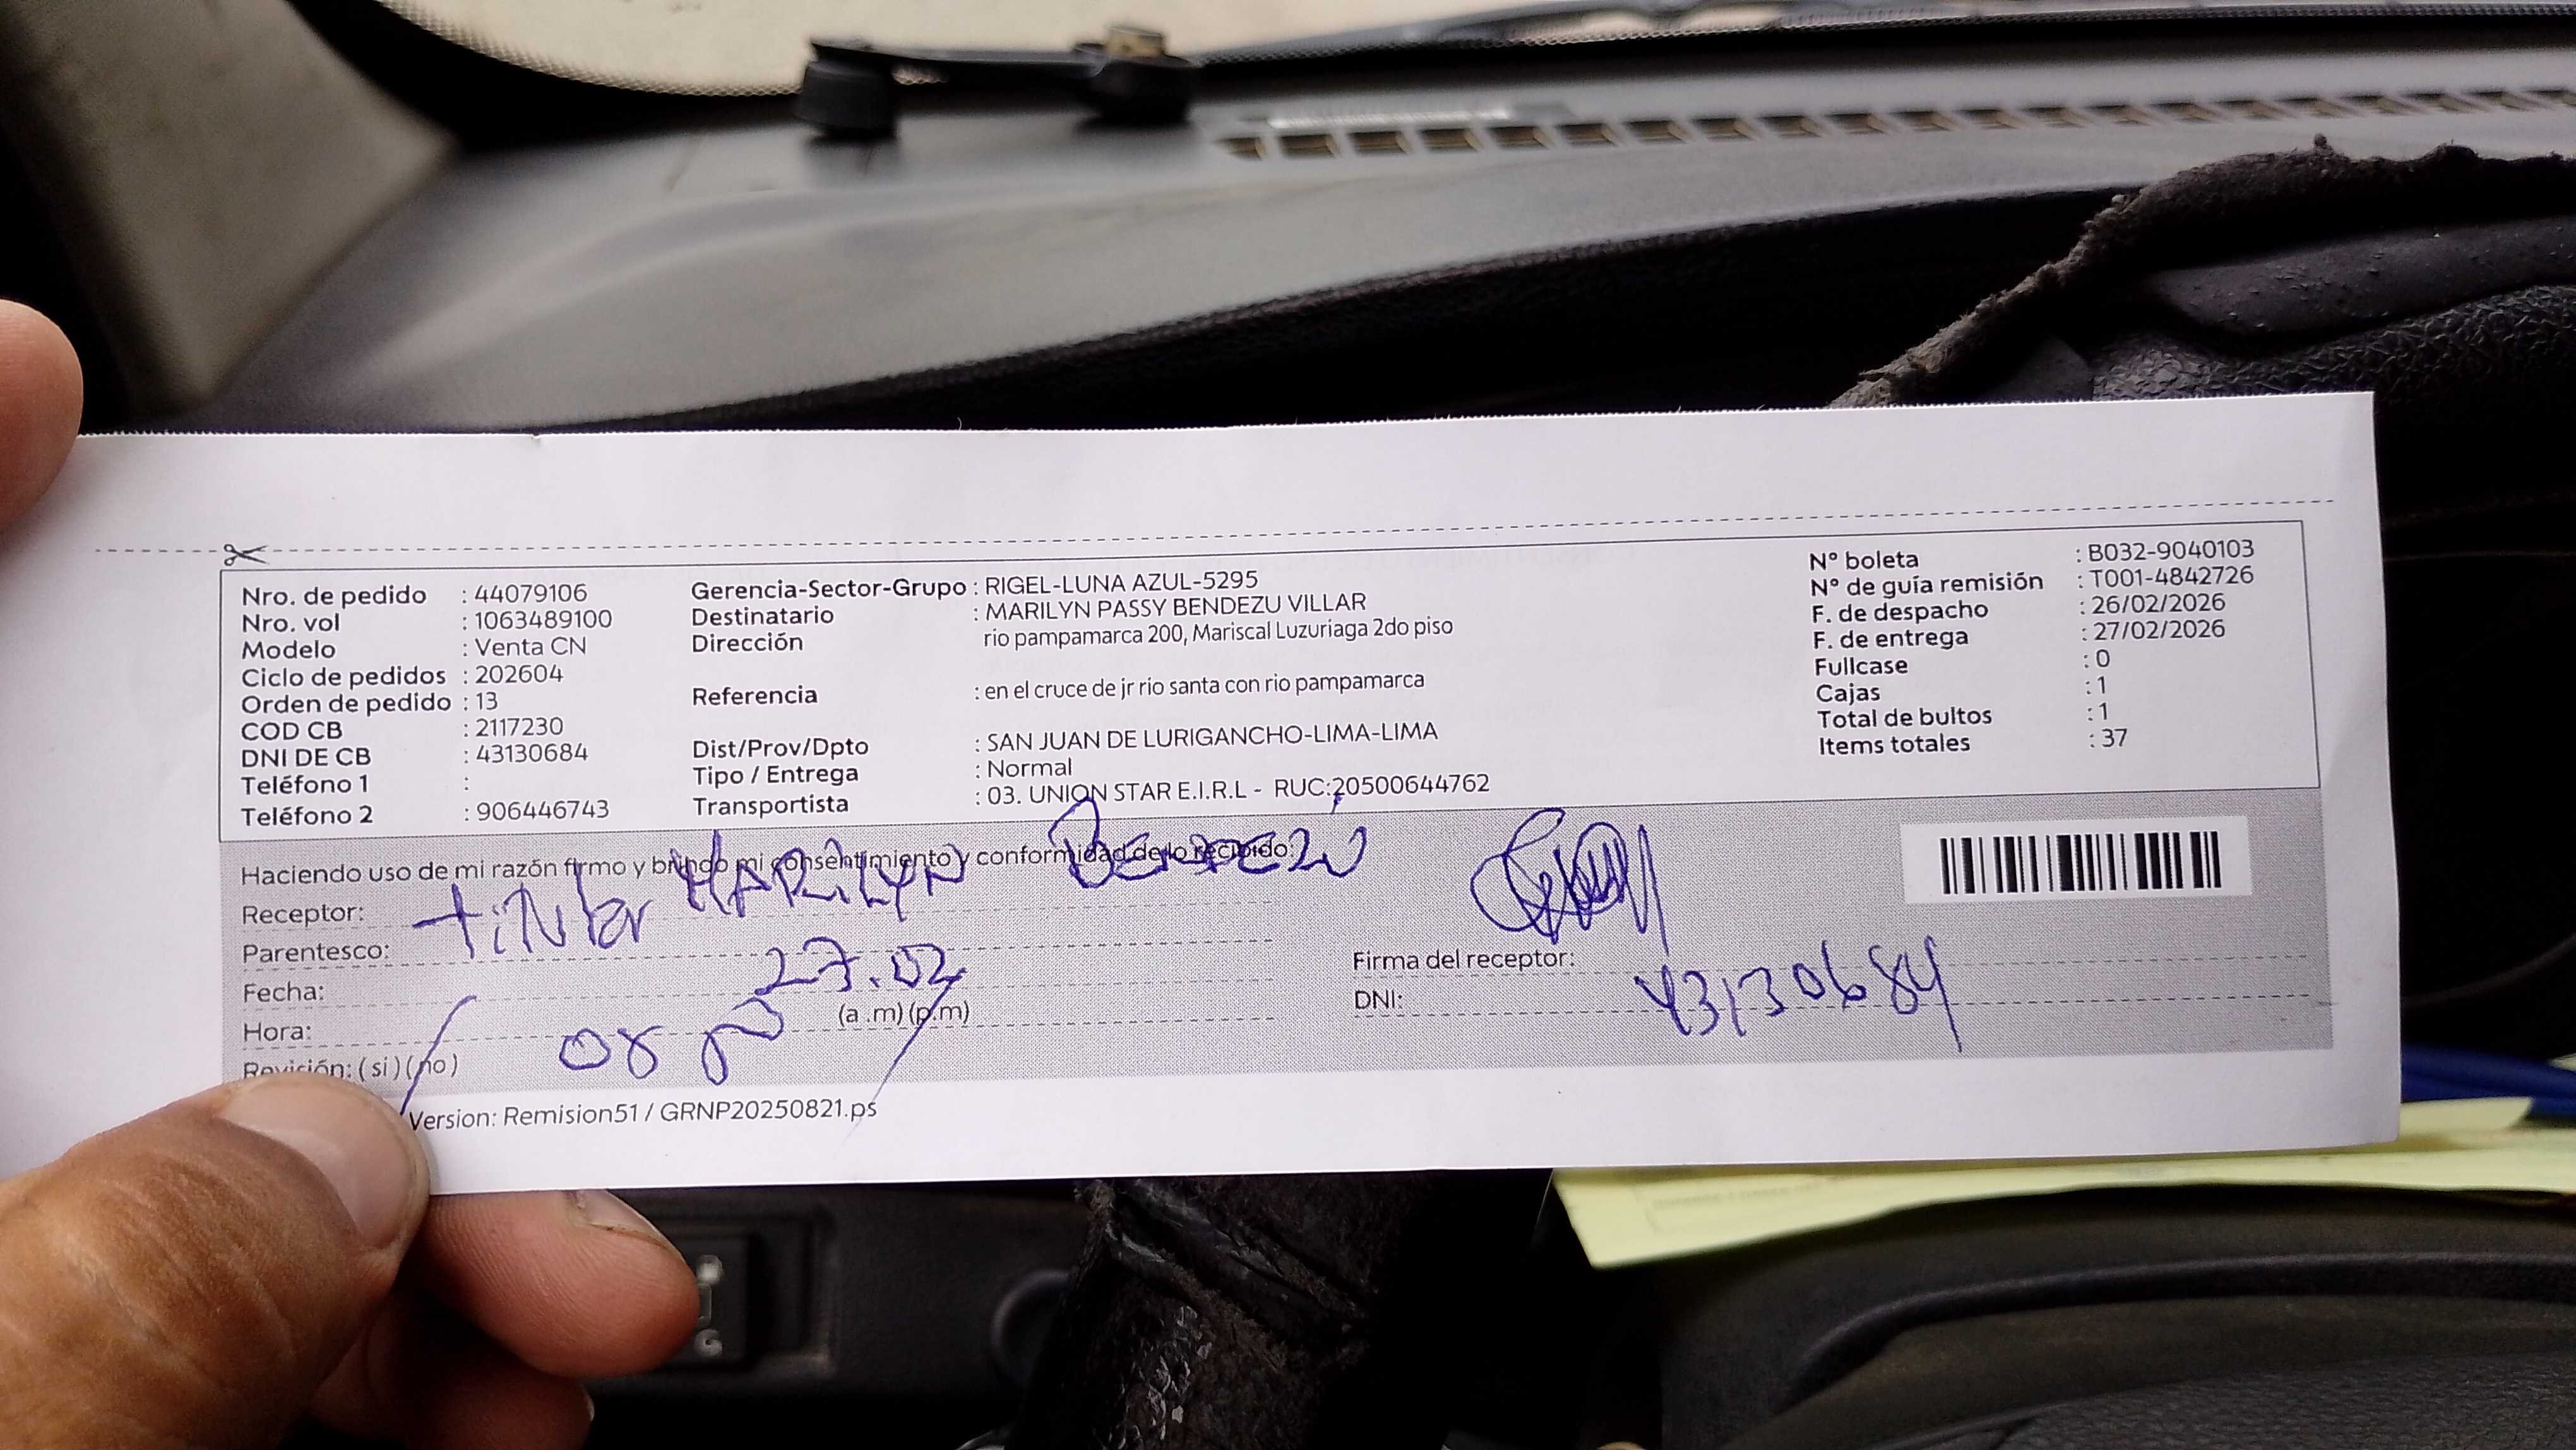 Nro. de pedido : 44079106
Nro. vol : 1063489100
Modelo : Venta CN
Ciclo de pedidos : 202604
Orden de pedido : 13
COD CB : 2117230
DNI DE CB : 43130684
Teléfono 1 :
Teléfono 2 : 906446743
Gerencia-Sector-Grupo : RIGEL-LUNA AZUL-5295
Destinatario : MARILYN PASSY BENDEZU VILLAR
Dirección rio pampamarca 200, Mariscal Luzuriaga 2do piso
Referencia : en el cruce de jr rio santa con rio pampamarca
Dist/Prov/Dpto : SAN JUAN DE LURIGANCHO-LIMA-LIMA
Tipo / Entrega : Normal
Transportista : 03. UNION STAR E.I.R.L - RUC:20500644762
N° boleta : B032-9040103
N° de guía remisión : T001-4842726
F. de despacho : 26/02/2026
F. de entrega : 27/02/2026
Fullcase : 0
Cajas : 1
Total de bultos : 1
Items totales : 37
Haciendo uso de mi razón firmo y brindo mi consentimiento y conformidad de lo recibido:
Receptor: titular MARILYN Bendezú
Parentesco:
Fecha: 27.02
Hora: (a .m) (p.m)
Revisión: ( si ) ( no )
Firma del receptor:
DNI: 43130684
Version: Remision51 / GRNP20250821.ps